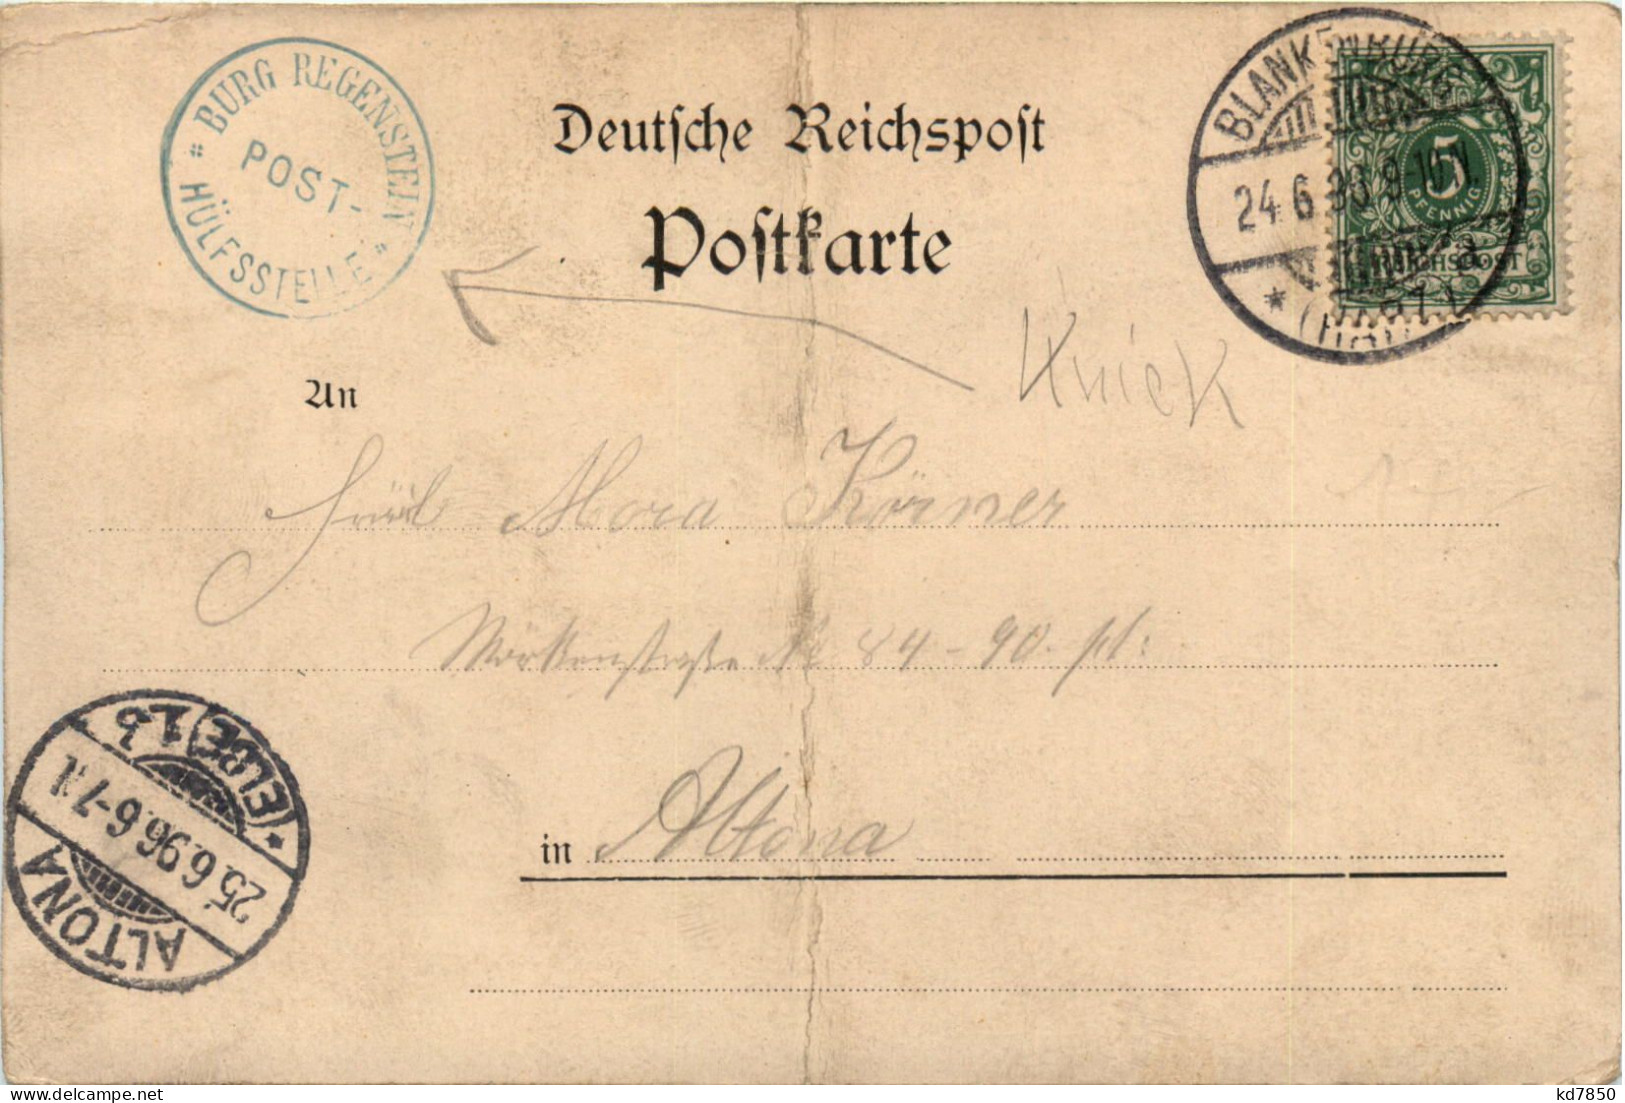 BURG REGENSTEIN
POST-
HÜLFSSTELLE
Deutsche Reichspost
Postkarte
BLANKENBURG
24.6.96.9-10N.
* (HARZ) a
5
PFENNIG
REICHSPOST
Knick
An
Körner
No 84-90. pt:
in Altona
ALTONA
25.6.96.6-7N.
* (ELBE) 1b
kd7850